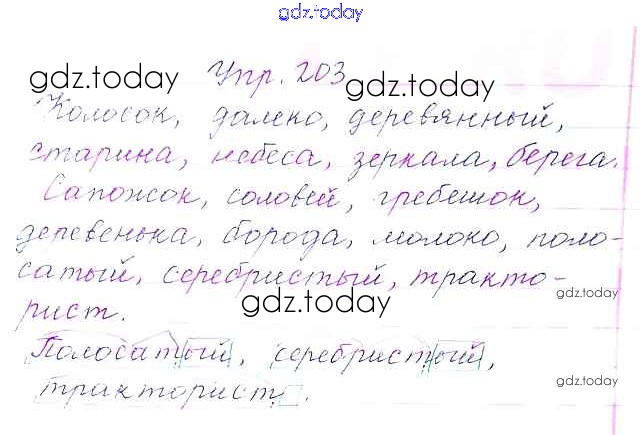 gdz.today
Упр. 203
gdz.today gdz.today
Колосок, далеко, деревянный,
старина, небеса, зеркала, берега.
Сапожок, соловей, гребешок,
деревенька, борода, молоко, поло-
сатый, серебристый, тракто-
рист.
gdz.today gdz.today
Полосатый, серебристый,
тракторист.
gdz.today